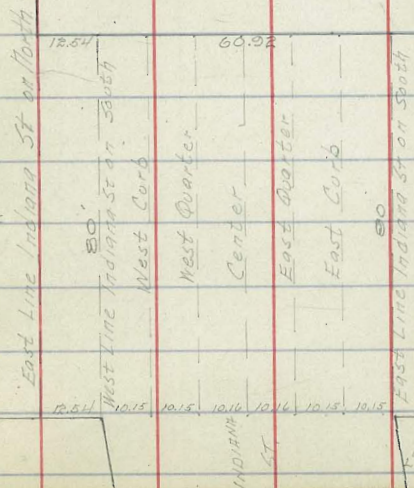 12.54 60.92
East Line Indiana St on North
80'
West Line Indiana St on South
West Curb
West Quarter
Center
East Quarter
East Curb
80
East Line Indiana St on South
12.54 10.15 10.15 10.16 10.16 10.15 10.15
INDIANA
ST.